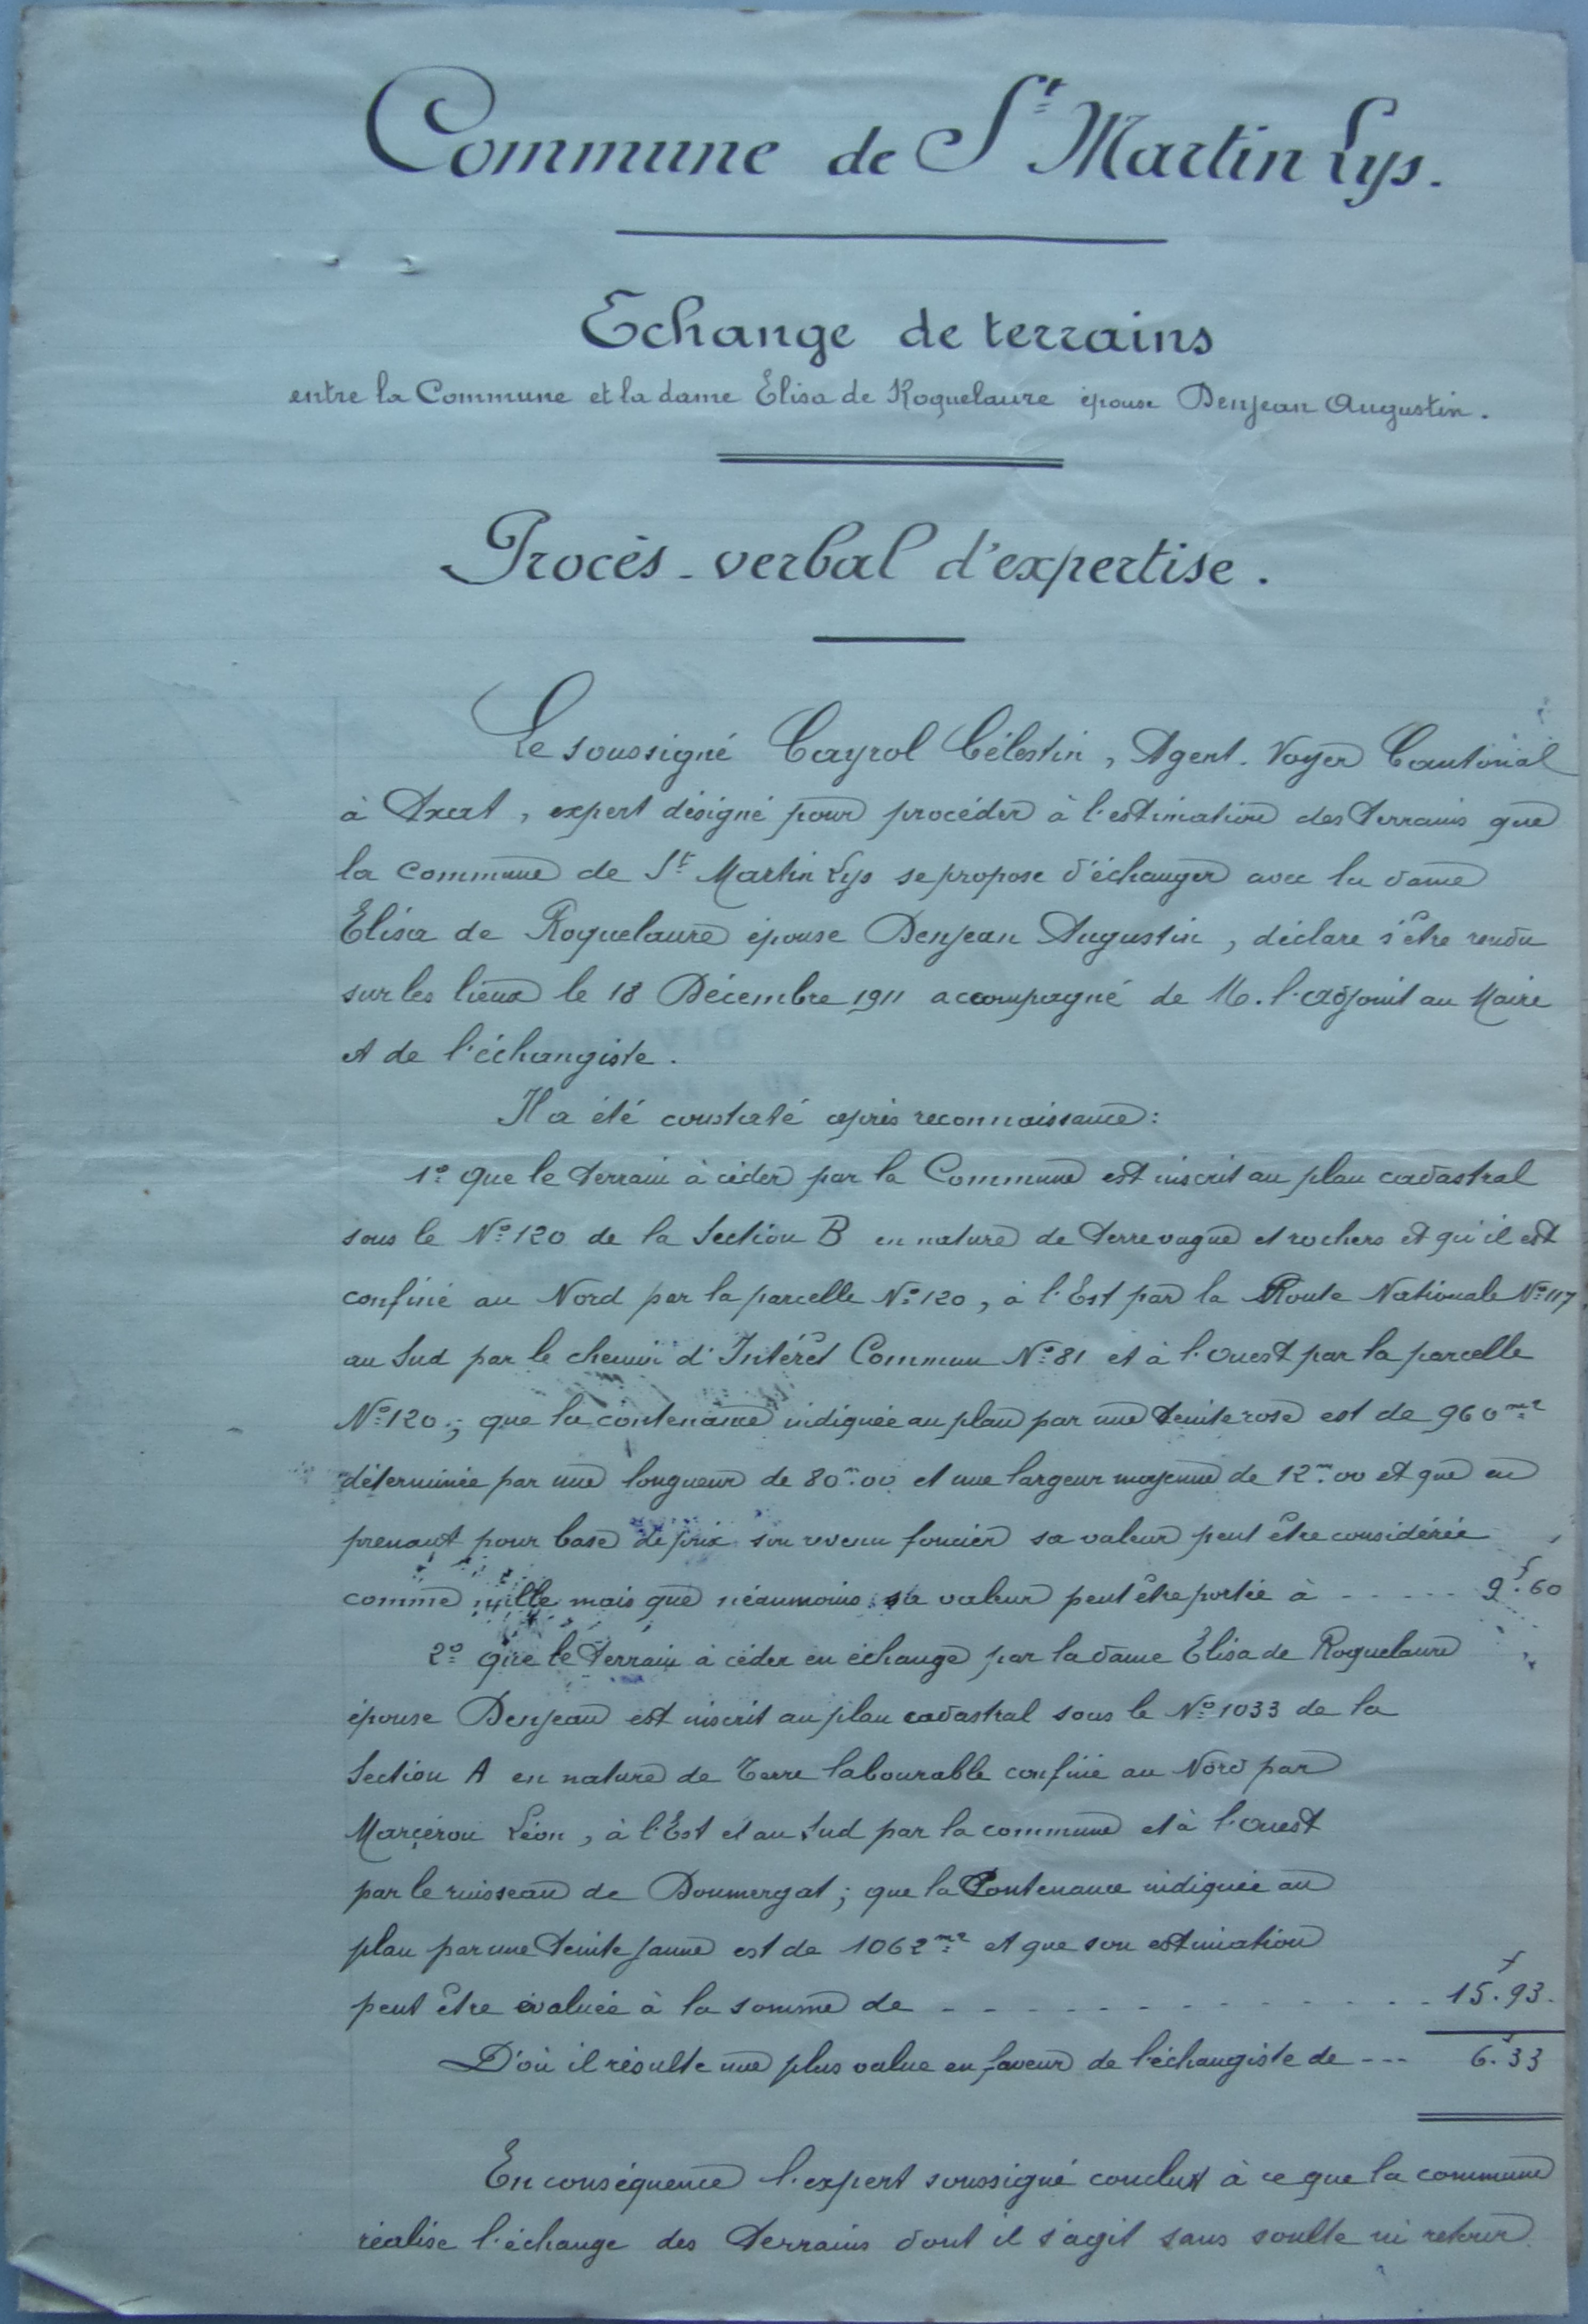 Commune de St Martin Lys.
Echange de terrains
entre la Commune et la dame Elisa de Roquelaure épouse Denjean Augustin.
Procès-verbal d'expertise.
Le soussigné Cayrol Célestin, Agent-Voyer Cantonal
à Axat, expert désigné pour procéder à l'estimation des terrains que
la commune de St Martin Lys se propose d'échanger avec la dame
Elisa de Roquelaure épouse Denjean Augustin, déclare s'être rendu
sur les lieux le 18 Décembre 1911 accompagné de M. l'adjoint au Maire
et de l'échangiste.
Il a été constaté après reconnaissance:
1º que le terrain à céder par la Commune est inscrit au plan cadastral
sous le Nº 120 de la Section B en nature de terre vague et rochers et qu'il est
confiné au Nord par la parcelle Nº 120, à l'Est par la Route Nationale Nº 117
au Sud par le chemin d'Intérêt Commun Nº 81 et à l'ouest par la parcelle
Nº 120; que la contenance indiquée au plan par une teinte rose est de 960 m2
déterminée par une longueur de 80m.00 et une largeur moyenne de 12m.00 et que en
prenant pour base de prix son revenu foncier sa valeur peut être considérée
comme nulle mais que néanmoins sa valeur peut être portée à ----- 9f.60
2º que le terrain à céder en échange par la dame Elisa de Roquelaure
épouse Denjean est inscrit au plan cadastral sous le Nº 1033 de la
Section A en nature de Terre labourable confiné au Nord par
Marcérou Léon, à l'Est et au Sud par la commune et à l'ouest
par le ruisseau de Doumergat; que la Contenance indiquée au
plan par une teinte jaune est de 1062 m2 et que son estimation
peut être évaluée à la somme de - - - - - - - - - - - - - - 15f.93.
D'où il résulte une plus value en faveur de l'échangiste de --- 6f.33
En conséquence l'expert soussigné conclut à ce que la commune
réalise l'échange des terrains dont il s'agit sans soulte ni retour